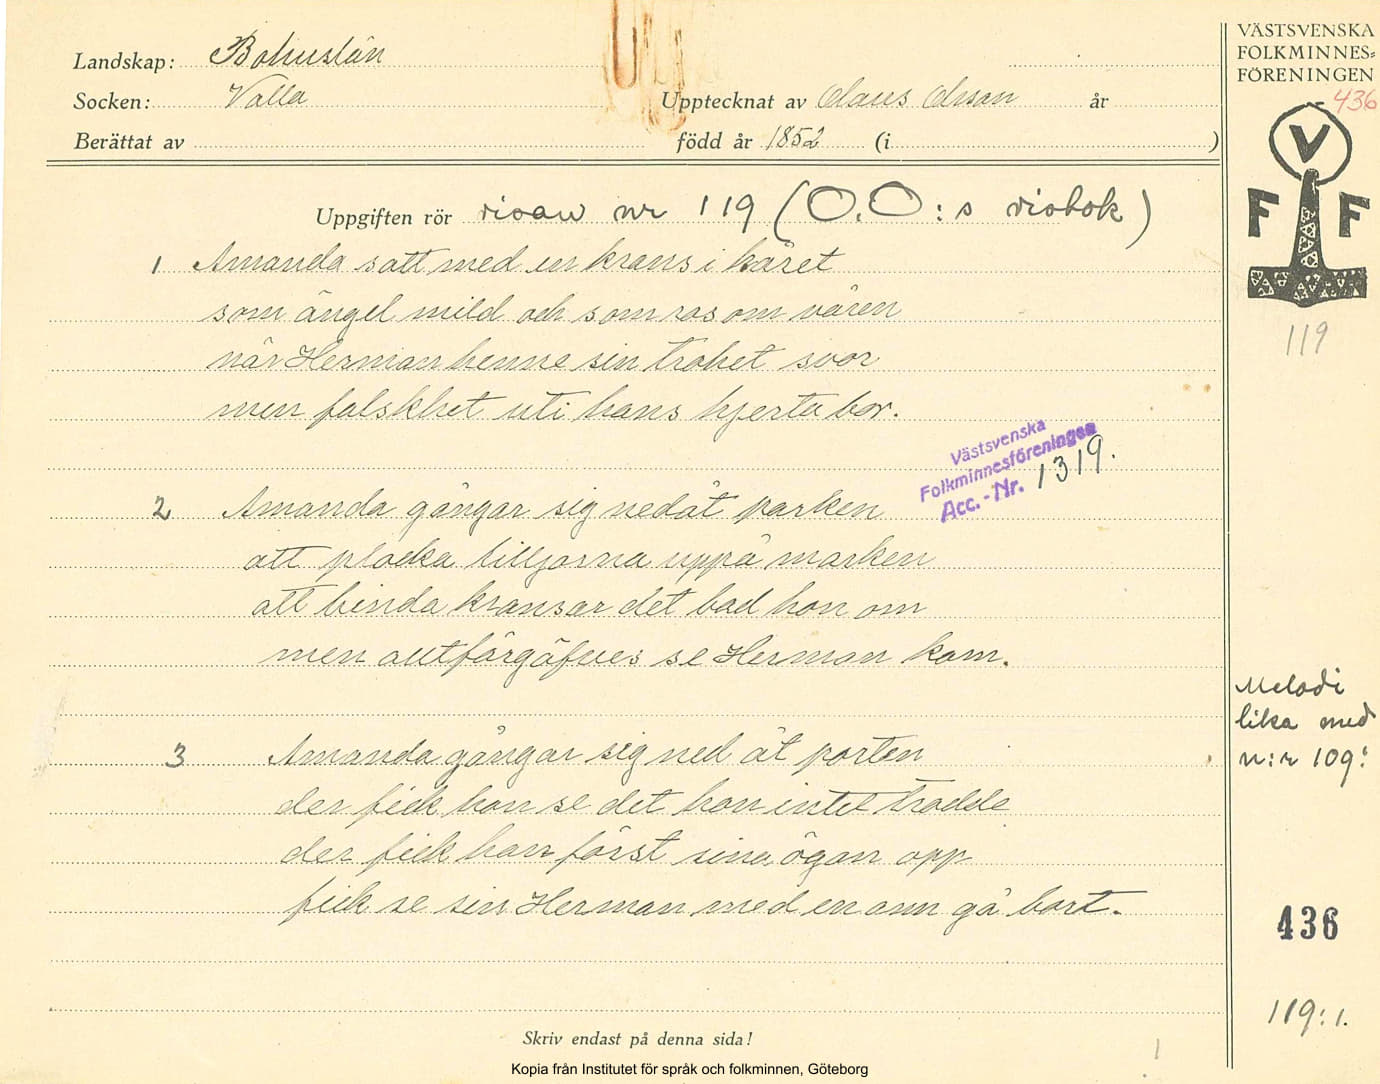 Landskap: Bohuslän
Socken: Valla
Upptecknat av Olaus Olsson år
Berättat av
född år 1852 (i )
VÄSTSVENSKA
FOLKMINNES=
FÖRENINGEN
436
V
F F
119
Uppgiften rör visan nr 119 (O.O:s visbok)
1 Amanda satt med en krans i håret
som ängel mild och som ros om våren
när Herman henne sin trohet svor
men falskhet uti hans hjerta bor.
Västsvenska
Folkminnesföreningen
Acc.-Nr. 1319.
2 Amanda gångar sig nedåt parken
att plocka liljorna uppå marken
att binda kransar det bad hon om
men autförgäfves se Herman kom.
3 Amanda gångar sig ned åt porten
der fick hon se det hon intet trodde
der fick hon först sina ögon opp
fick se sin Herman med en ann gå bort.
Melodi
lika med
n:r 109:
436
119:1.
1
Skriv endast på denna sida!
Kopia från Institutet för språk och folkminnen, Göteborg